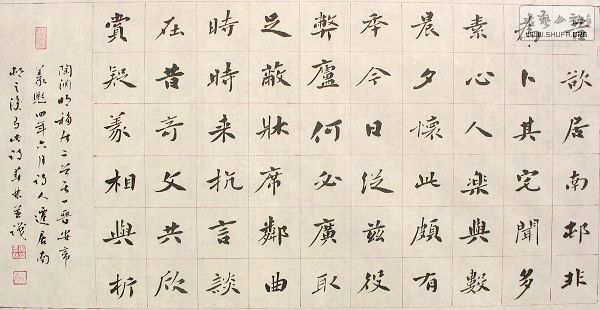 昔欲居南邨非
為卜其宅聞多
素心人樂與數
晨夕懷此頗有
秊今日從兹役
弊廬何必廣取
足蔽牀席鄰曲
時時来抗言談
在昔奇文共欣
賞疑義相與析
陶淵明移居二首其一晉安帝
義熙四年六月詩人遷居南
邨之後有此詩 並識
WWW.SHUFA.ORG